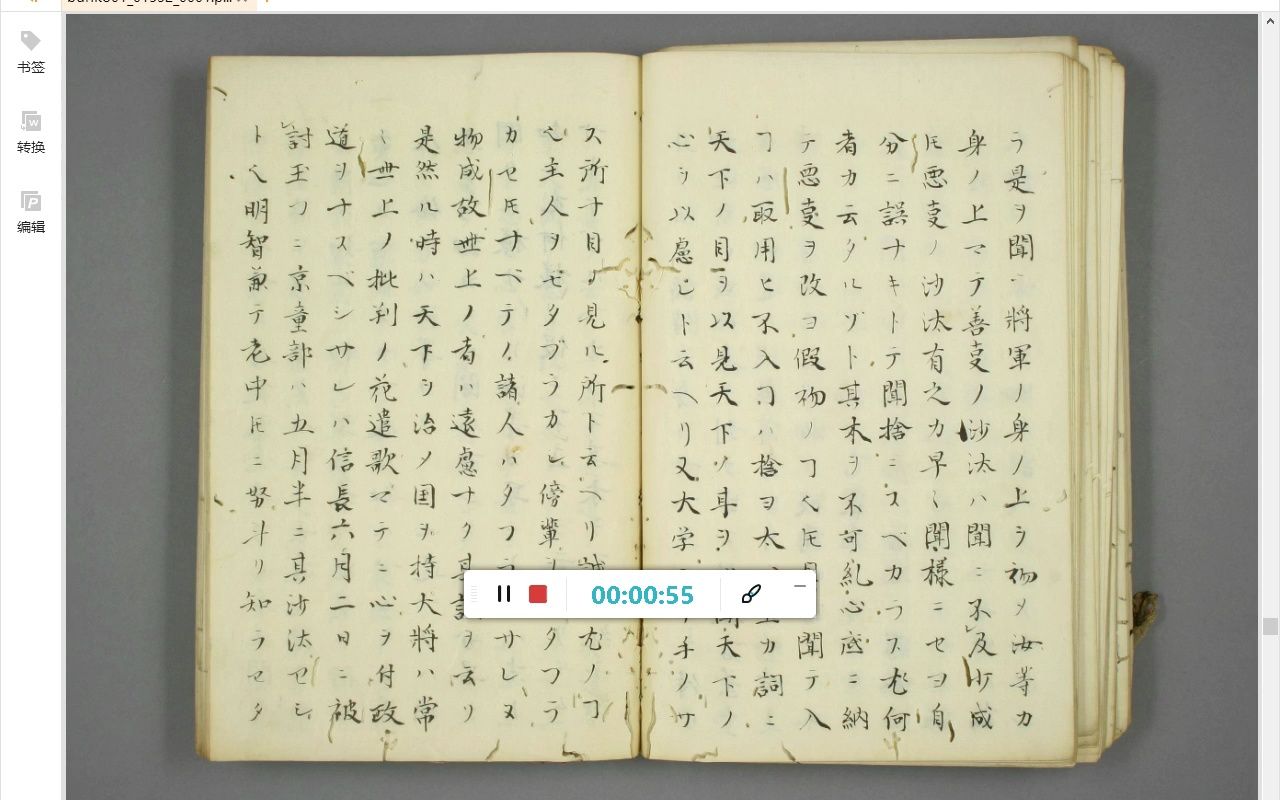 書签
转换
编辑
00:00:55
ラ是ヲ聞テ将軍ノ身ノ上ヲ初メ汝等カ
身ノ上マテ善㕝ノ沙汰ハ聞ニ不及少成
𪜈悪㕝ノ沙汰有之カ早〻聞様ニセヨ自
分ニ誤ナキトテ聞捨ニスベカラス尤何
者カ云タルゾト其本ヲ不可糺心底ニ納
テ悪㕝ヲ改ヨ假初ノヿ人𪜈 聞テ入
ヿハ取用ヒ不入ヿハ捨ヨ太 カ詞ニ
天下ノ目ヲ以見天下ノ耳ヲ 聞天下ノ
心ヲ以慮レト云ヘリ又大学 手ノサ
ス所十目ノ見ル所ト云ヘリ誠 尤ノヿ
人主人ヲモタブラカし傍輩ヲ タフラ
カセ𪜈ナベテノ諸人ハタフラ サレヌ
物成故世上ノ者ハ遠慮ナク其 ヲ云リ
是然ル時ハ天下ヲ治メ国ヲ持大将ハ常
〻世上ノ批判ノ花遣歌マテニ心ヲ付政
道ヲナスベシサレハ信長六月二日ニ被
討玉フニ京童部ハ五月半ニ其沙汰セシ
ト人明智兼テ老中𪜈ニ努斗リ知ラセタ